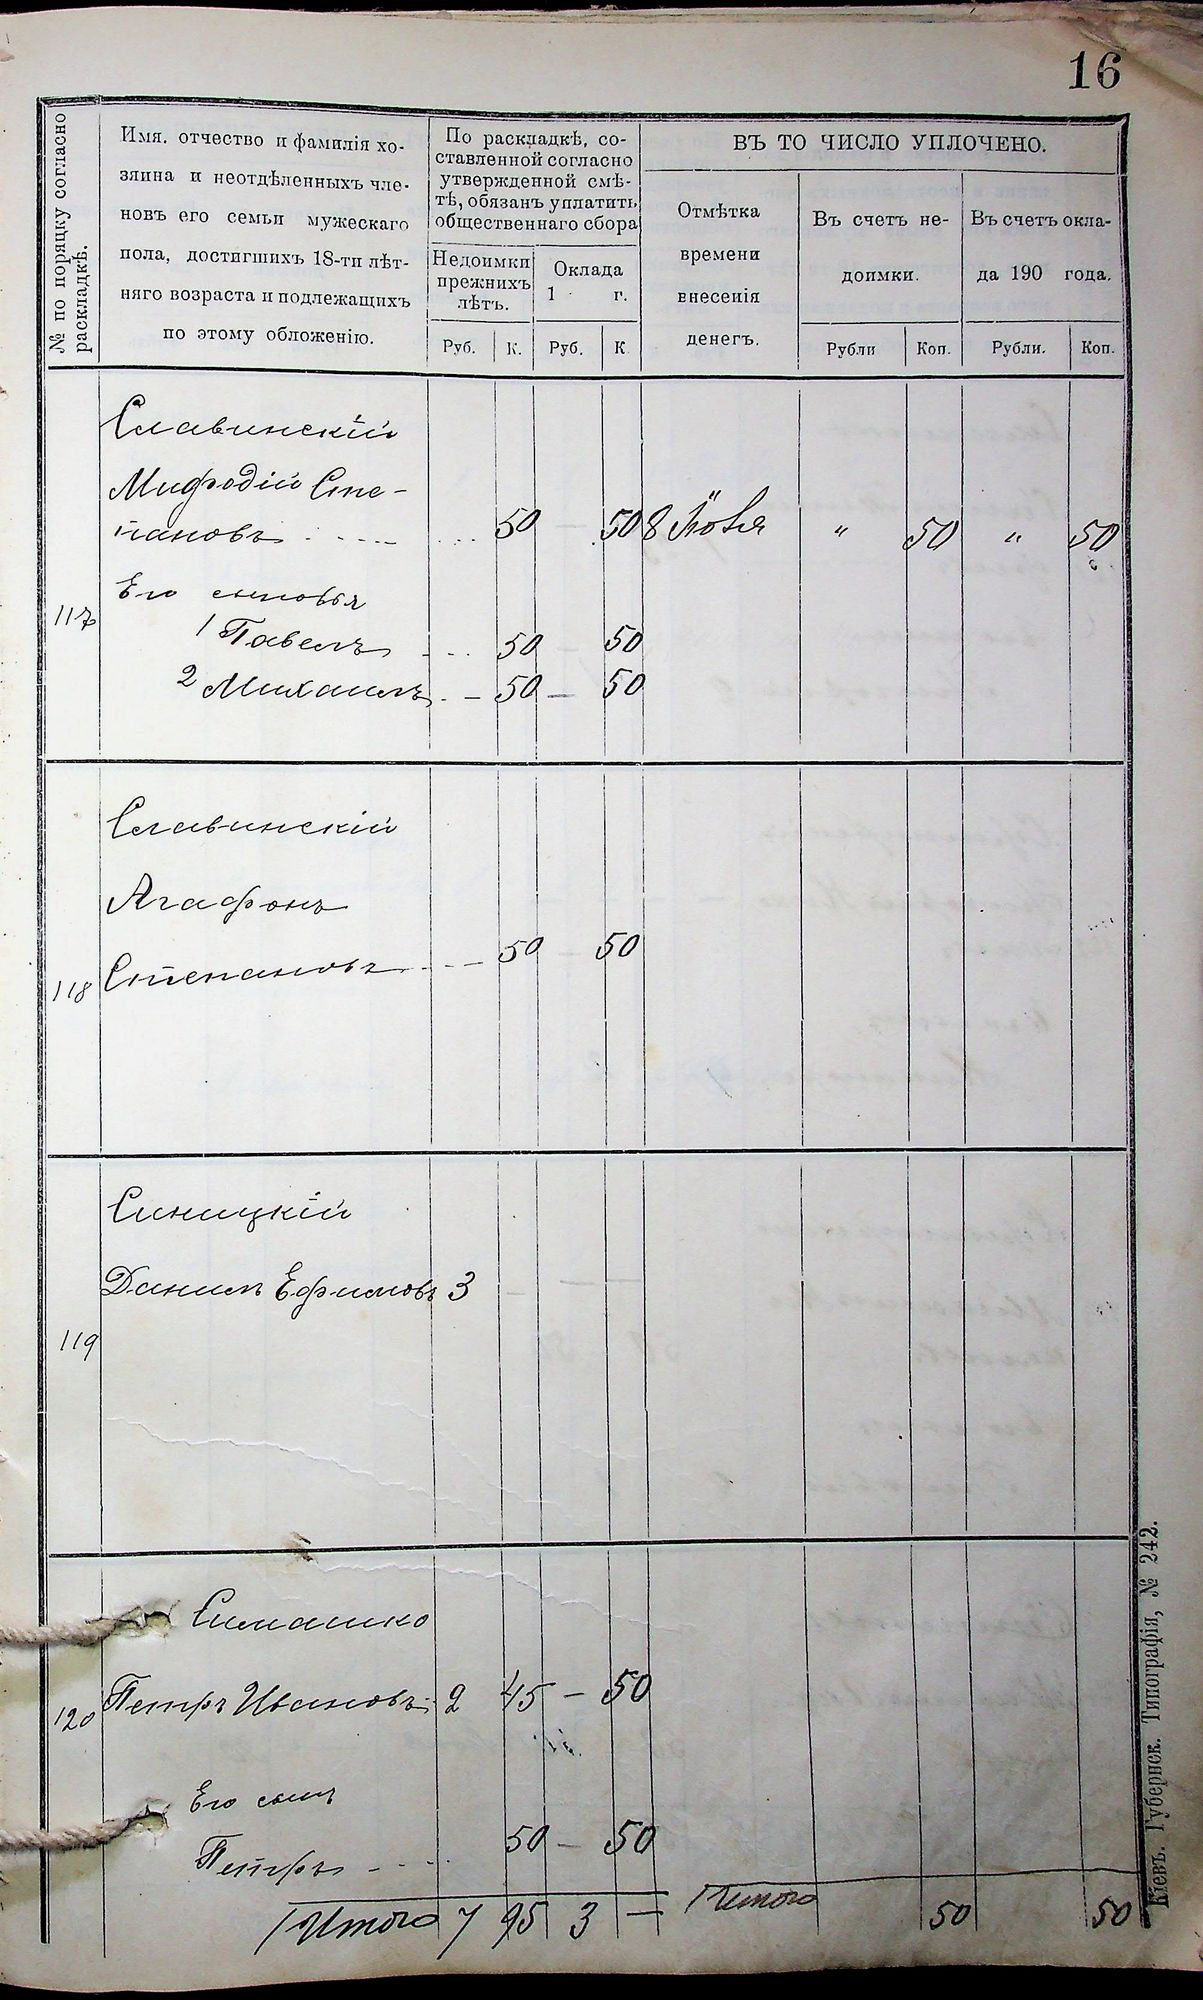 16
№ по порядку согласно раскладкѣ.
Имя. отчество и фамилія хо-
зяина и неотдѣленныхъ чле-
новъ его семьи мужескаго
пола, достигшихъ 18-ти лѣт-
няго возраста и подлежащихъ
по этому обложенію.
По раскладкѣ, со-
ставленной согласно
утвержденной смѣ-
тѣ, обязанъ уплатить
общественнаго сбора
Недоимки
прежнихъ
лѣтъ.
Оклада
1 г.
Руб. К. Руб. К
ВЪ ТО ЧИСЛО УПЛОЧЕНО.
Отмѣтка
времени
внесенія
денегъ.
Въ счетъ не-
доимки.
Рубли Коп.
Въ счетъ окла-
да 190 года.
Рубли. Коп.
Славинскій
Мифодій Сте-
пановъ 50 — 50 8 " 50 " 50
Его сыновья
117
1 Павелъ 50 — 50
2 Михаилъ 50 — 50
Славинскій
Агафонъ
118 Степановъ 50 — 50
Синицкій
Данилъ Ефимовъ 3 —
119
Симашко
120 Петръ Ивановъ 2 45 — 50
Его сынъ
Петръ 50 — 50
Итого 7 95 3 — Итого 50 50
Кіевъ. Губернск. Типографія, № 242.